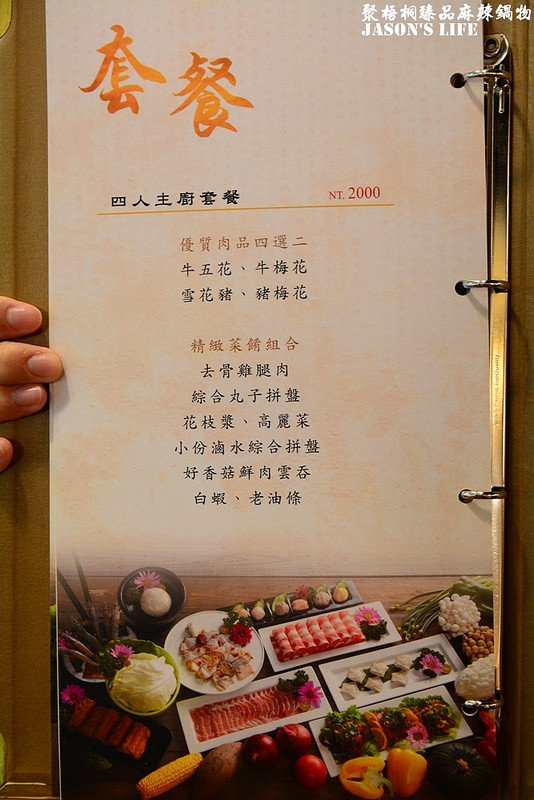 聚梧桐臻品麻辣鍋物
JASON'S LIFE
套餐
四人主廚套餐 NT. 2000
優質肉品四選二
牛五花、牛梅花
雪花豬、豬梅花
精緻菜餚組合
去骨雞腿肉
綜合丸子拼盤
花枝漿、高麗菜
小份滷水綜合拼盤
好香菇鮮肉雲吞
白蝦、老油條